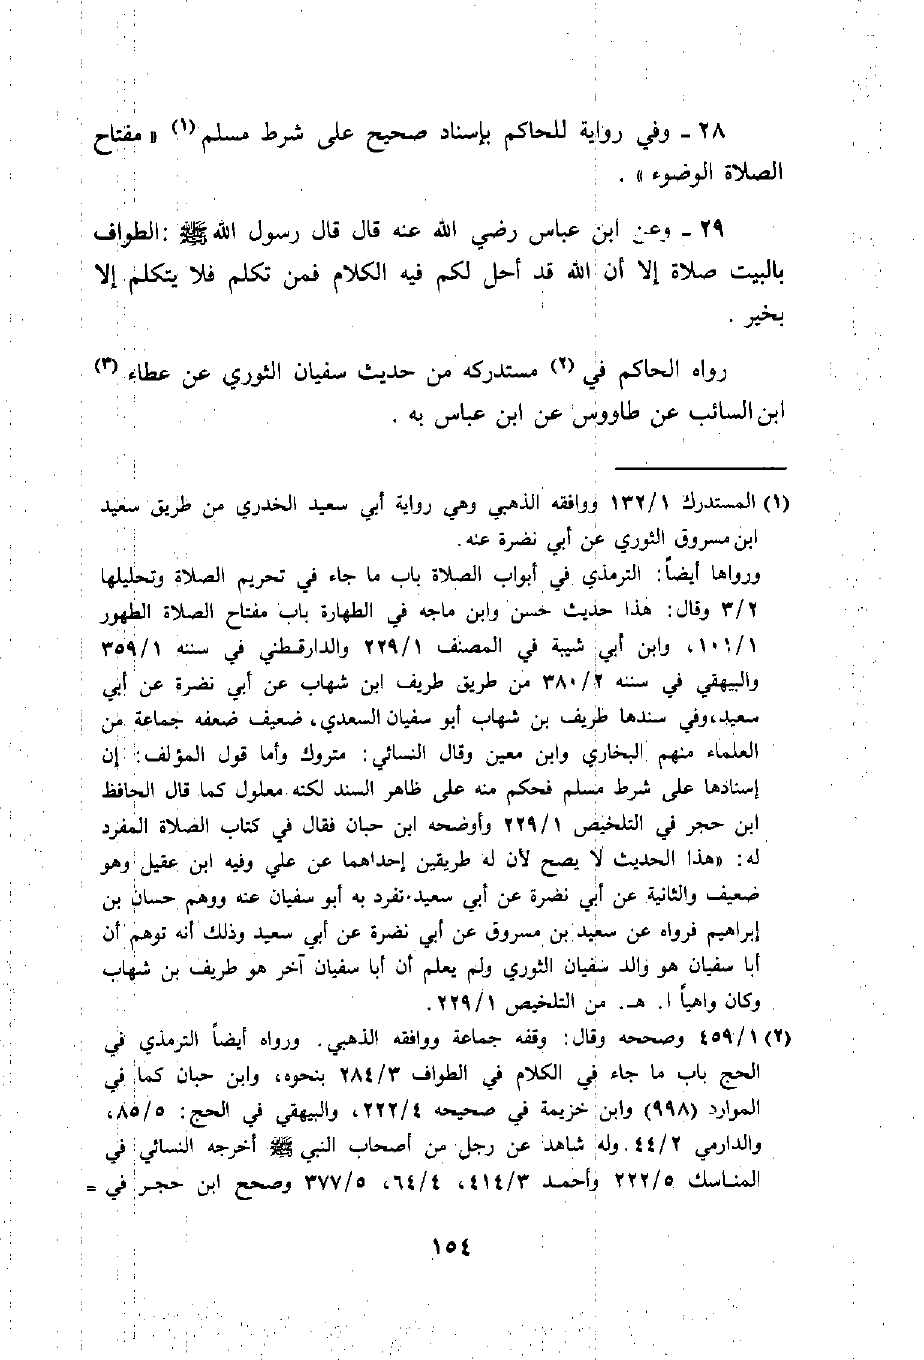 ٢٨ ـ وفي رواية للحاكم بإسناد صحيح على شرط مسلم (١) « مفتاح
الصلاة الوضوء » .
٢٩ ـ وعن ابن عباس رضي الله عنه قال قال رسول الله ﷺ : الطواف
بالبيت صلاة إلا أن الله قد أحل لكم فيه الكلام فمن تكلم فلا يتكلم إلا
بخير .
رواه الحاكم في (٢) مستدركه من حديث سفيان الثوري عن عطاء (٣)
ابن السائب عن طاووس عن ابن عباس به .
(١) المستدرك ١٣٢/١ ووافقه الذهبي وهي رواية أبي سعيد الخدري من طريق سعيد
ابن مسروق الثوري عن أبي نضرة عنه.
ورواها أيضاً: الترمذي في أبواب الصلاة باب ما جاء في تحريم الصلاة وتحليلها
٣/٢ وقال: هذا حديث حسن وابن ماجه في الطهارة باب مفتاح الصلاة الطهور
١٠١/١، وابن أبي شيبة في المصنف ٢٢٩/١ والدارقطني في سننه ٣٥٩/١
والبيهقي في سننه ٣٨٠/٢ من طريق طريف ابن شهاب عن أبي نضرة عن أبي
سعيد، وفي سندها طريف بن شهاب أبو سفيان السعدي، ضعيف ضعفه جماعة من
العلماء منهم البخاري وابن معين وقال النسائي: متروك وأما قول المؤلف: إن
إسنادها على شرط مسلم فحكم منه على ظاهر السند لكنه معلول كما قال الحافظ
ابن حجر في التلخيص ٢٢٩/١ وأوضحه ابن حبان فقال في كتاب الصلاة المفرد
له: «هذا الحديث لا يصح لأن له طريقين إحداهما عن علي وفيه ابن عقيل وهو
ضعيف والثانية عن أبي نضرة عن أبي سعيد تفرد به أبو سفيان عنه ووهم حسان بن
إبراهيم فرواه عن سعيد بن مسروق عن أبي نضرة عن أبي سعيد وذلك أنه توهم أن
أبا سفيان هو والد سفيان الثوري ولم يعلم أن أبا سفيان آخر هو طريف بن شهاب
وكان واهياً ا. هـ. من التلخيص ٢٢٩/١.
(٢) ٤٥٩/١ وصححه وقال: وقفه جماعة ووافقه الذهبي. ورواه أيضاً الترمذي في
الحج باب ما جاء في الكلام في الطواف ٢٨٤/٣ بنحوه، وابن حبان كما في
الموارد (٩٩٨) وابن خزيمة في صحيحه ٢٢٢/٤، والبيهقي في الحج: ٨٥/٥،
والدارمي ٤٤/٢. وله شاهد عن رجل من أصحاب النبي ﷺ أخرجه النسائي في
المناسك ٢٢٢/٥ وأحمد ٤١٤/٣، ٦٤/٤، ٣٧٧/٥ وصحح ابن حجر في =
١٥٤